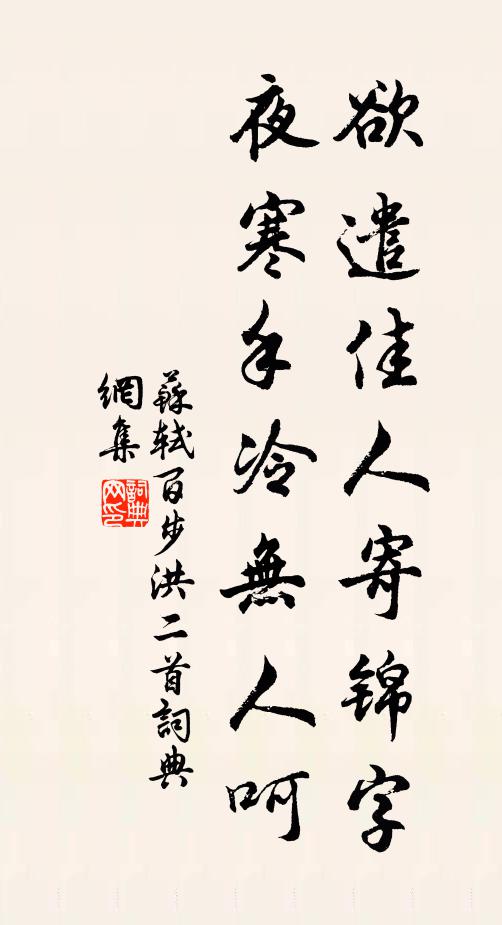 欲遣佳人寄锦字
夜寒手冷無人呵
蘇軾百步洪二首詞典
網集
詞典
网印